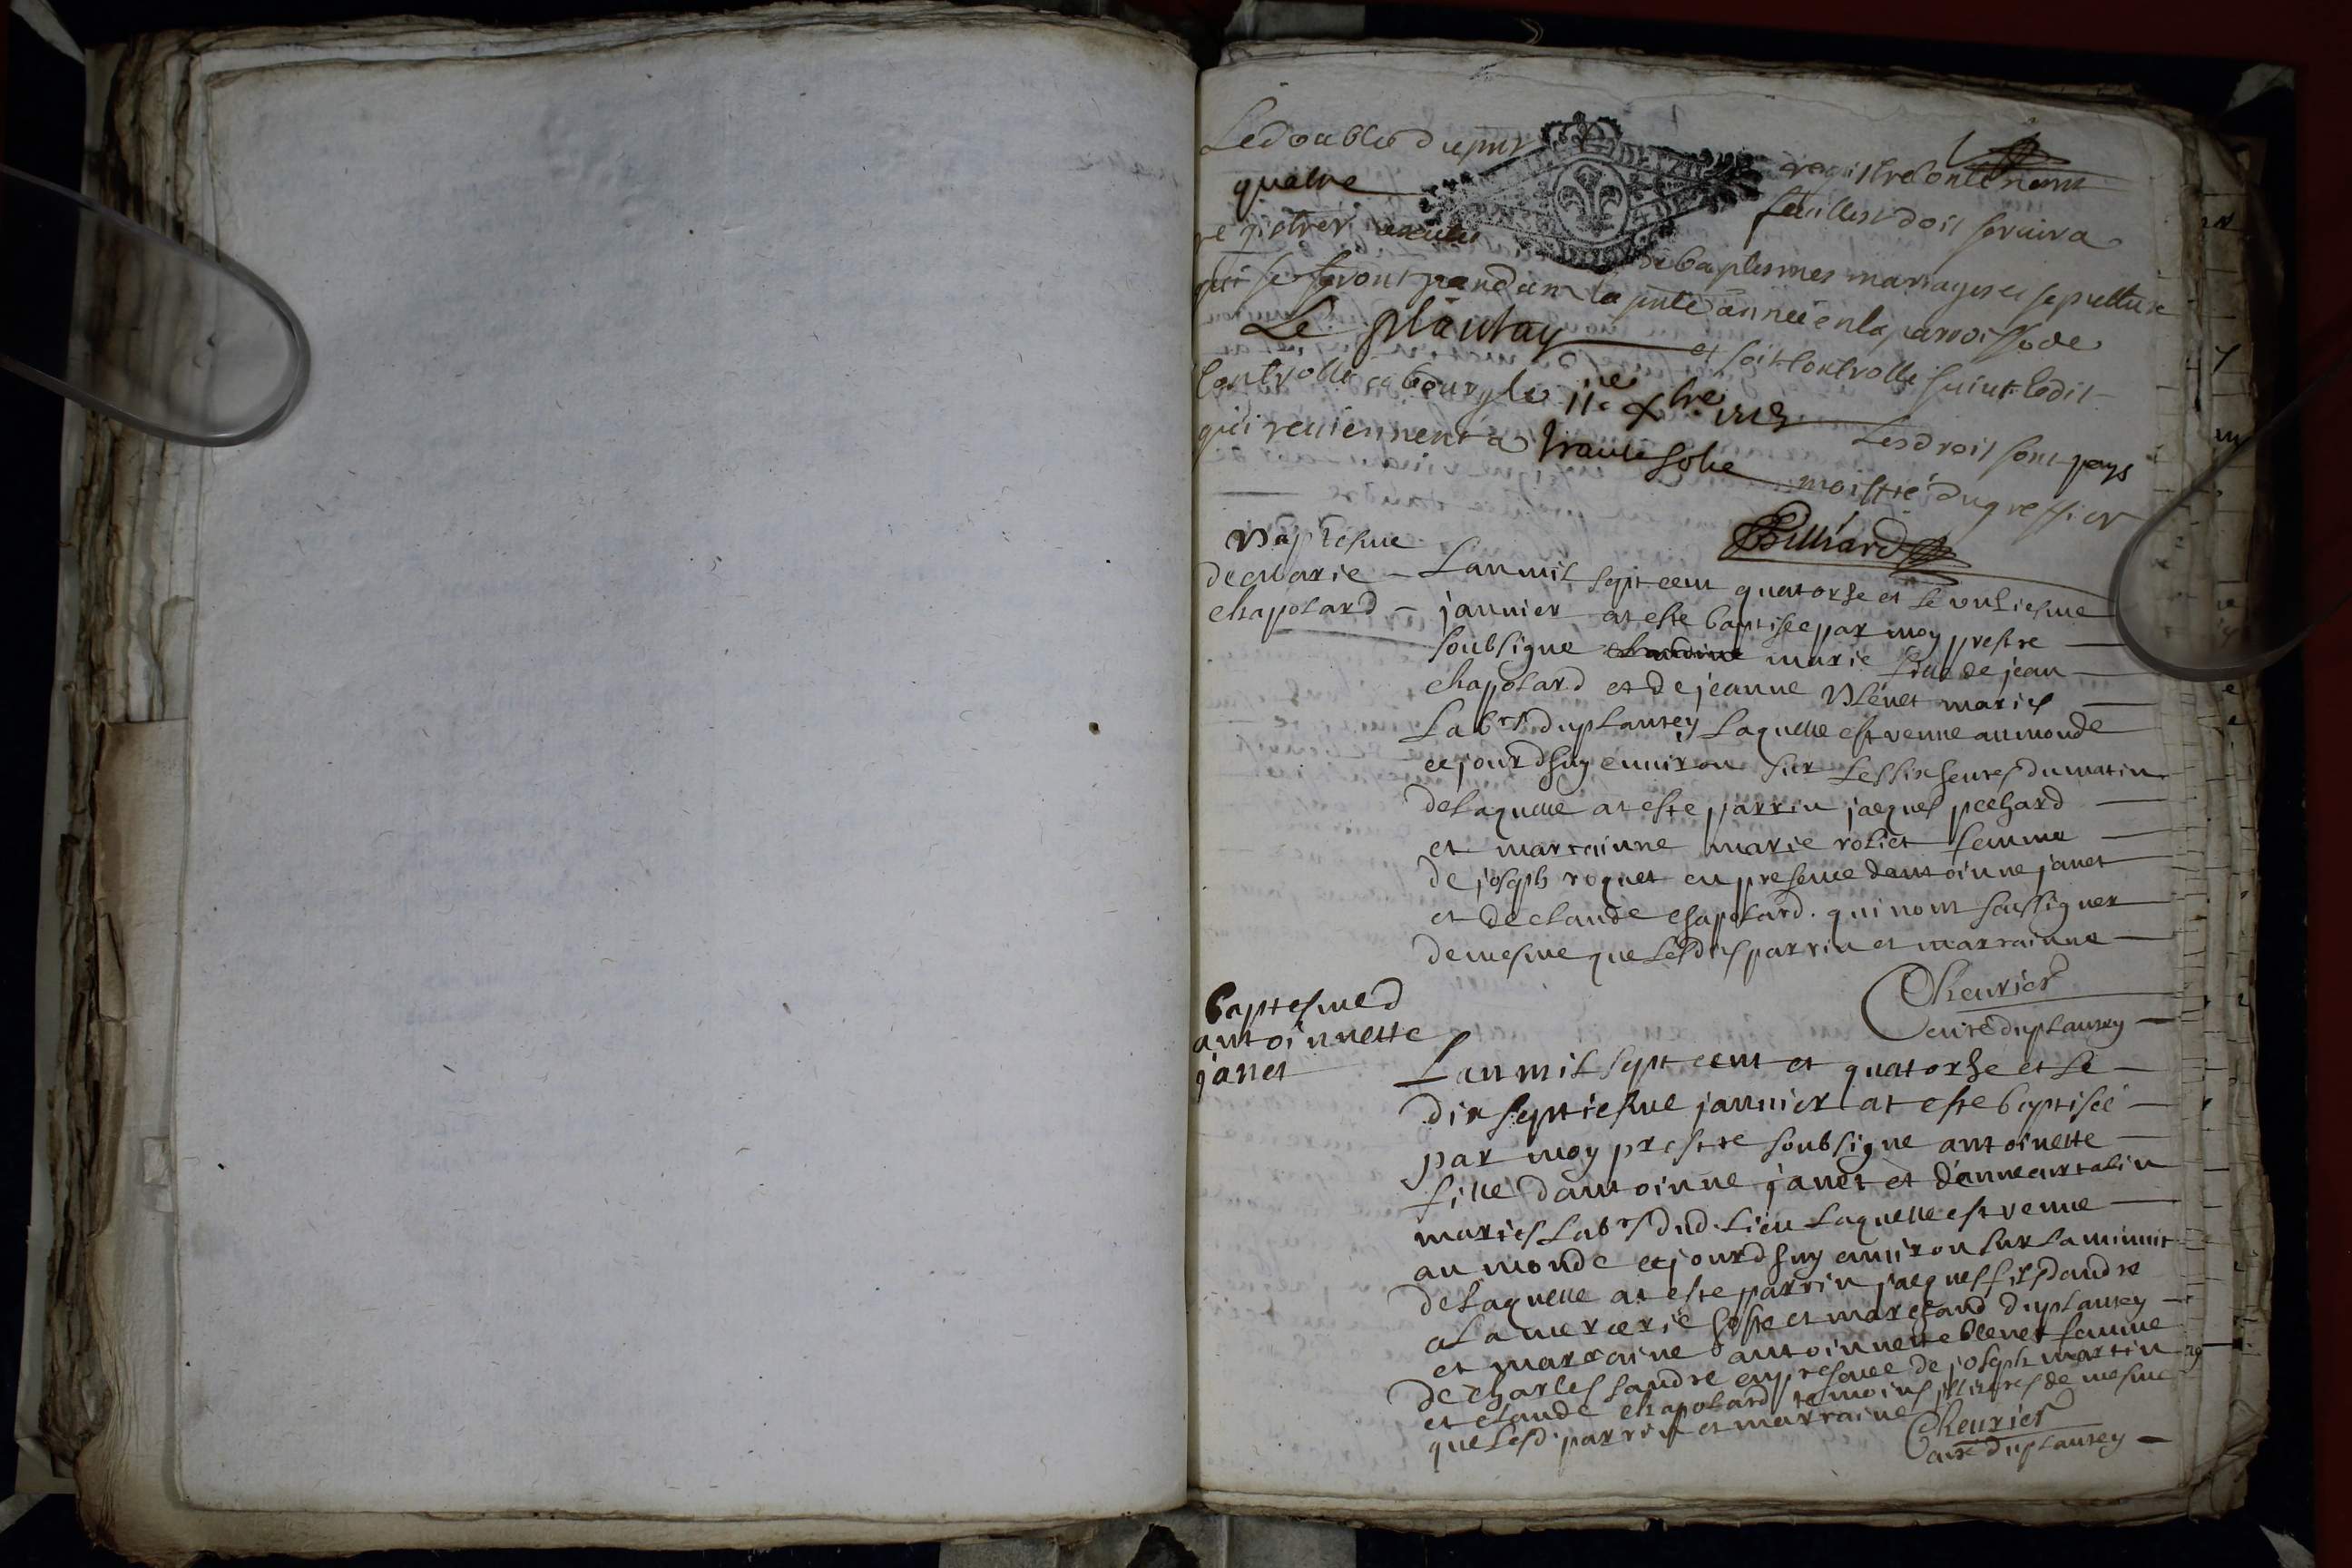 Le double du pnt registre contenant
quatre feuillest doit servir a
registrer de baptesmes mariages et sepulture
qui se feront pendant la pnte année en la parroisse de
Le plantay et soit controlle suiut ledit
Controlle a bourg le 11e xbre 1713 Les droit sont payé
qui reuiennent a trante solz moittié du greffier
Billiard
Baptesme
de marie
chapolard
Lan mil sept cent quatorse et le onsiesme
januier at este baptisee par moy prestre
soubsigne marie fille de jean
chapolard et de jeanne Blenet maries
Labrs du plantey Laquelle est venue au monde
ce jourdhuy enuiron sur les six heures du matin
de laquelle at este parrin jacques pechard
et marrainne marie roliet femme
de joseph roquet en presence dantoinne janet
et de claude chapolard. qui nont sceu signer
de mesme que lesdits parrin et marrainne
Cheurier
cure du plantey
baptesme d
antoinnette
janet
Lan mil sept cent et quatorse et le
dix septiesme januier at este baptisée
par moy prestre soubsigne antoinette
fille dantoinne janet et danne curtalin
maries Labrs dud. Lieu Laquelle est venue
au monde ce jourdhuy enuiron sur la minuit
de laquelle at este parrin jacques fils dandre
a La mercerie hoste et marchand du plantey
et marraine antoinnette blenet femme
de charles sandre en presence de joseph martin
et claude chapolard temoins illitres de mesme
que lesd. parrin et marraine
Cheurier
cure du plantey